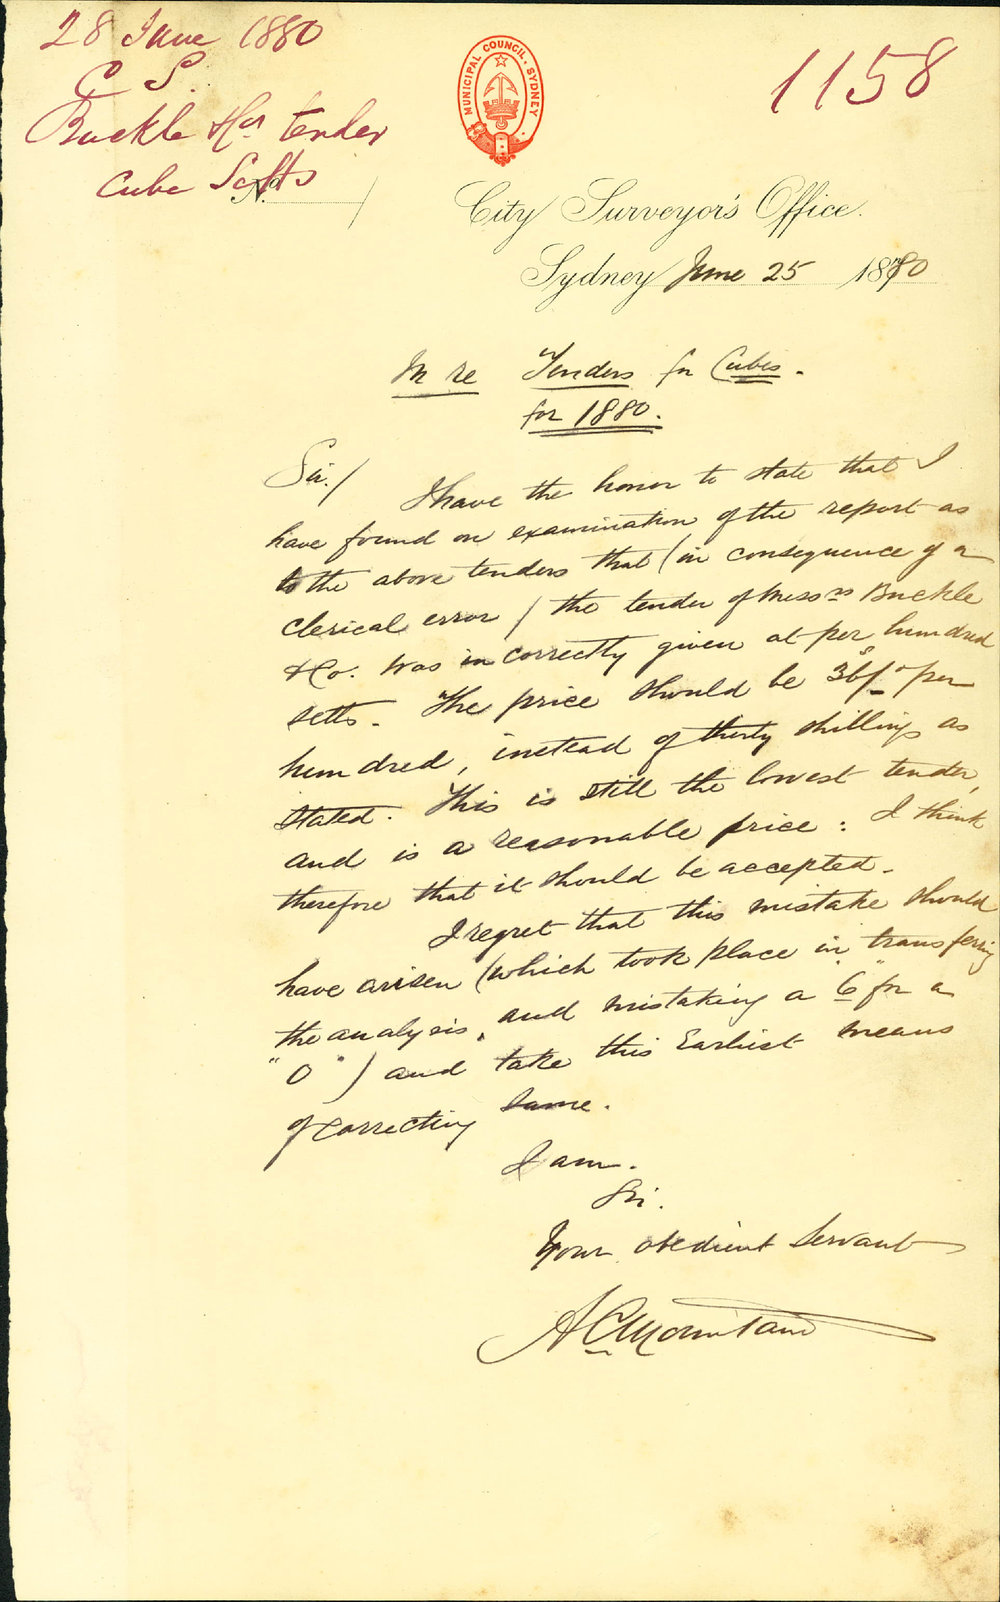 28 June 1880
C S.
Buckle & Cos tender
Cube Setts
1158
MUNICIPAL COUNCIL. SYDNEY
No
City Surveyor's Office.
Sydney June 25 1880
In re Tenders for Cubes.
for 1880.
Sir./ I have the honor to state that I
have found on examination of the report as
to the above tenders that (in consequence of a
clerical error) the tender of Messrs Buckle
& Co. was incorrectly given at per hundred
setts. The price should be 36/- per
hundred, instead of thirty shillings as
stated. This is still the lowest tender,
and is a reasonable price: I think
therefore that it should be accepted.
I regret that this mistake should
have arisen (which took place in transferring
the analysis, and mistaking a "6" for a
"0") and take this Earliest means
of correcting same.
I am.
Sir.
Your obedient Servant
A C Mountain